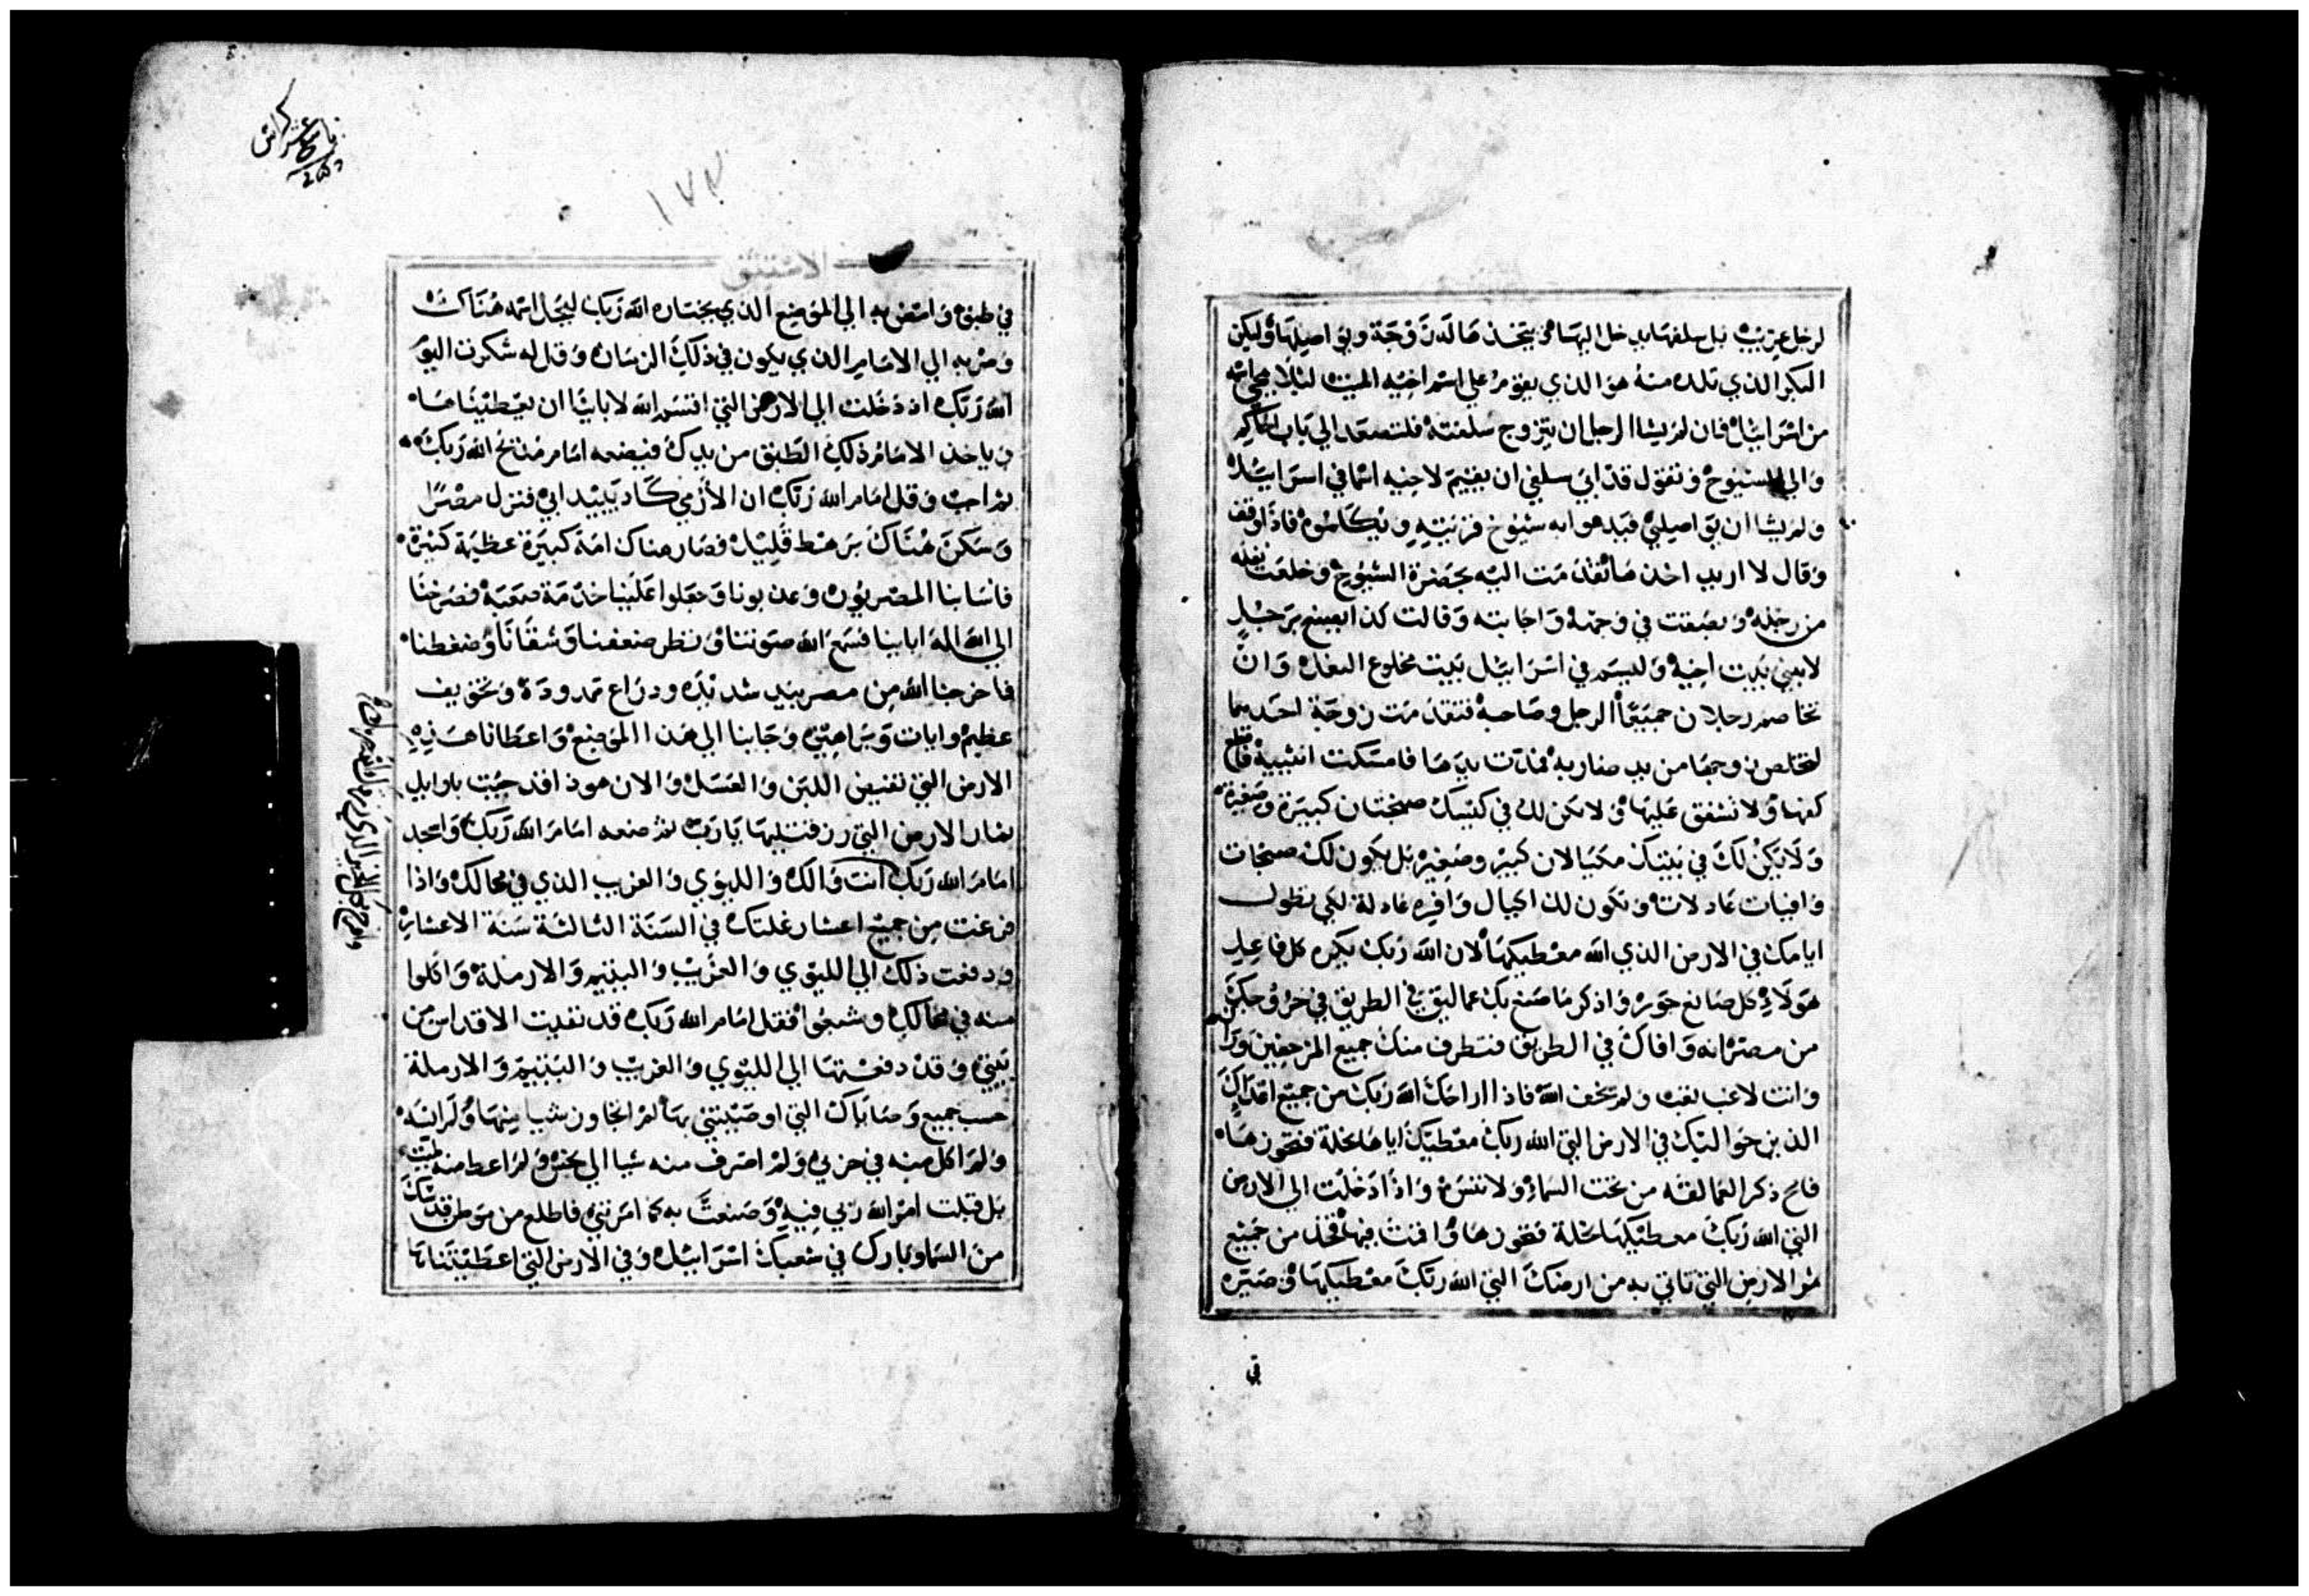 لرجل غريب بل سلفها يدخل اليها و يتخذها له زوجة و اصيلها وليكن
البكر الذي تلده منه هو الذي يقوم علي اسم اخيه الميت ليلا يمحي اسمه
من اسراييل فان لم يشا الرجل ان يتزوج سلفته فلتصعد الي باب الحاكم
والي الشيوخ وتقول قد ابي سلفي ان يقيم لاخيه اسما في اسراييل
ولم يشا ان اصيلي فيدعوا به شيوخ قريته ويكلموه فاذا وقف
وقال لا اريد اخذها تقدمت اليه بحضرة الشيوخ وخلعت نعله
من رجله وبصقت في وجهه واجابته وقالت كذا يصنع برجل
لا يبني بيت اخيه وليسم في اسراييل بيت مخلوع النعل وان
تخاصم رجلان جميعا الرجل وصاحبه فتقدمت زوجة احدهما
لتخلص زوجها من يد ضاربه فمدت يدها فامسكت انثييه فاقطع
كفها ولا تشفق عليها ولا يكن لك في كيسك صنجتان كبيرة وصغيرة
ولا يكن لك في بيتك مكيالان كبير وصغير بل يكون لك صنجات
وافيات عادلات وتكون لك اكيال وافيه عادلة لكي تطول
ايامك في الارض الذي الله معطيكها لان الله ربك يكره كل فاعل
هولاء كل صانع جور واذكر ما صنع بك عماليق في الطريق في خروجك
من مصر انه وافاك في الطريق فتطرف منك جميع المزحفين وراك
وانت لاغب تعب ولم تخف الله فاذا اراحك الله ربك من جميع اعداك
الذين حواليك في الارض التي الله ربك معطيك اياها نحلة فتحوزها
فامح ذكر العمالقه من تحت السماء ولا تنس واذا دخلت الي الارض
التي الله ربك معطيكها نحلة فتحوزها واقمت فيها فخذ من جميع
ثمر الارض التي تاتي به من ارضك التي الله ربك معطيكها وصيره
في
خامس عشر كراس
١٧٣
الاستثنى
في طبق وامض به الي الموضع الذي يختاره الله ربك ليحل اسمه هناك
وصر به الي الامام الذي يكون في ذلك الزمان وقل له شكرت اليوم
الله ربك اذ دخلت الي الارض التي اقسم الله لاباينا ان يعطيناها
وياخذ الامام ذلك الطبق من يدك فيضعه امام مذبح الله ربك
ثم اجب وقل امام الله ربك ان الأرمي كاد يبيد ابي فنزل مصرا
وسكن هناك برهط قليل فصار هناك امة كبيرة عظيمة كثيرة
فاسا بنا المصريون وعذبونا وجعلوا علينا خدمة صعبة فصرخنا
الي الله اله ابابينا فسمع الله صوتنا ونظر ضعفنا وشقانا وضغطنا
فاخرجنا الله من مصر بيد شديده وذراع ممدودة وتخويف
عظيم وايات وبراهين وجابنا الي هذا الموضع واعطانا هذه
الارض التي تفيض اللبن والعسل والان هوذا قد جيت باوايل
ثمار الارض التي رزقتنيها يا رب ثم ضعه امام الله ربك واسجد
امام الله ربك انت والك والليوي والغريب الذي في محالك واذا
فرغت من جميع اعشار غلتك في السنة الثالثة سنة الاعشار
ودفعت ذلك الي الليوي والغريب واليتيم والارملة واكلوا
منه في محالك وشبعوا فقل امام الله ربك قد نفيت الاقداس من
بيتي وقد دفعتها الي الليوي والغريب واليتيم والارملة
حسب جميع وصاياك التي اوصيتني بها لم اتجاوز شيا منها ولم انسه
ولم اكل منه في حزني ولم اصرف منه شيا الي نجس ولم اعط منه لميت
بل قبلت امر الله ربي فيه وصنعت به كما امرتني فاطلع من موطن قدسك
من السما وبارك في شعبك اسراييل وفي الارض التي اعطيتناها